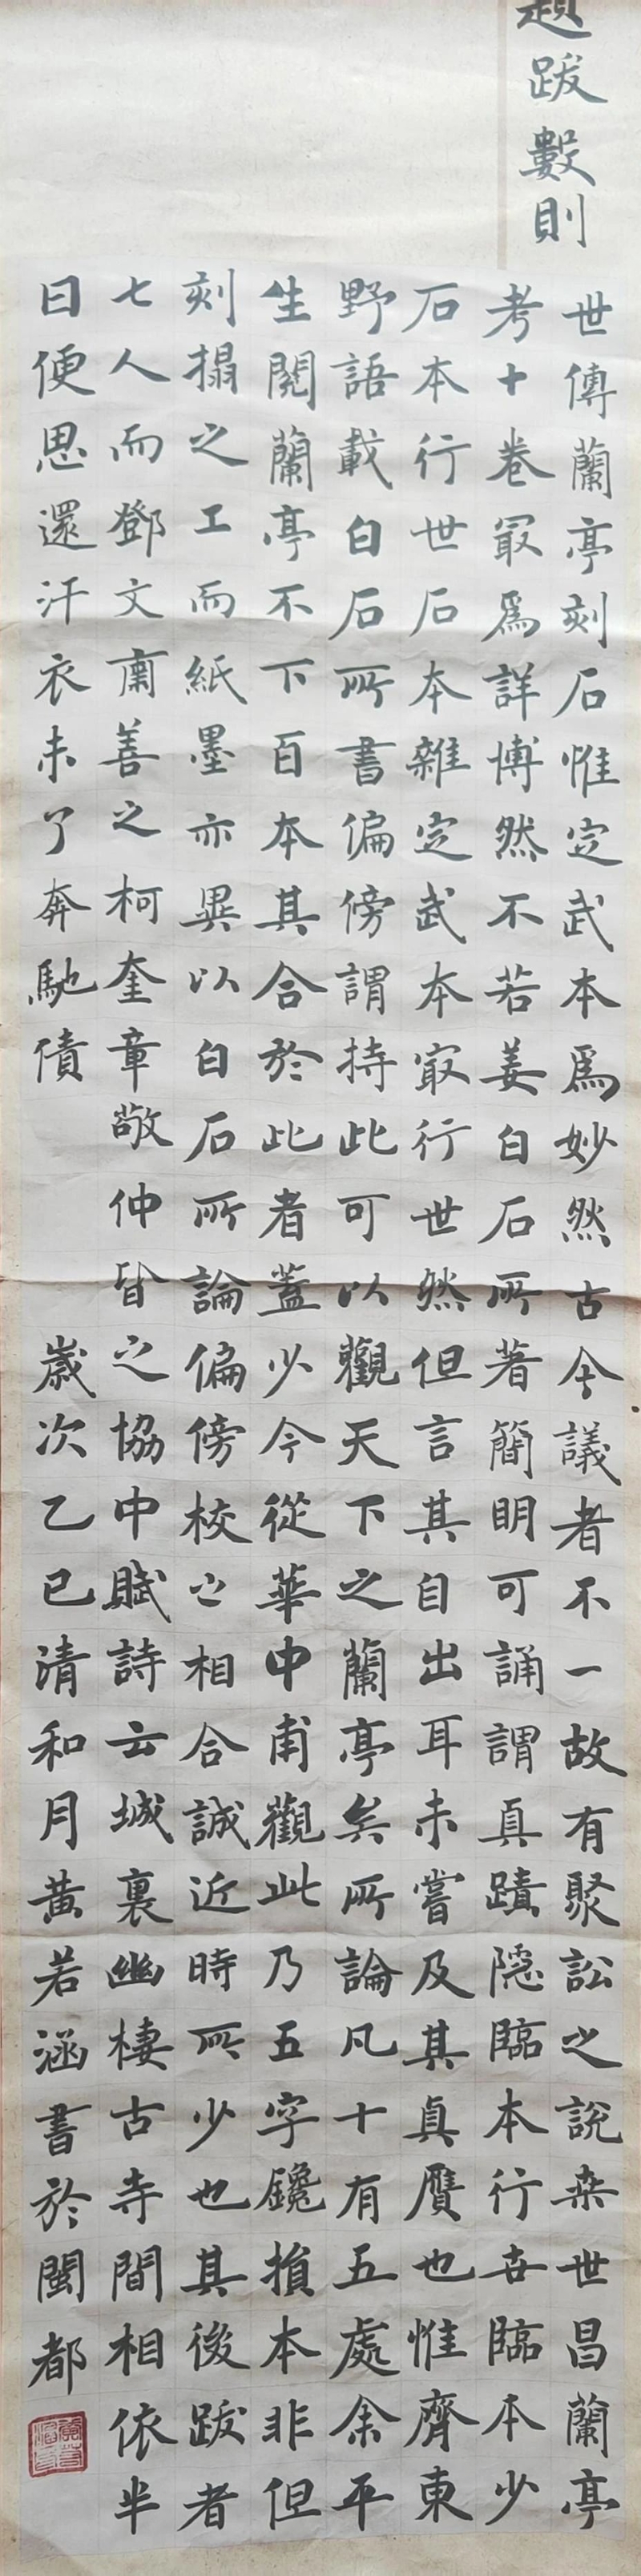 題跋數則
世傳蘭亭刻石惟定武本爲妙然古今議者不一故有聚訟之説桒世昌蘭亭
考十卷㝡爲詳博然不若姜白石所著簡明可誦謂真蹟隠臨本行世臨本少
石本行世石本雜定武本㝡行世然但言其自出耳未嘗及其真贗也惟齊東
野語載白石所書偏傍謂持此可以觀天下之蘭亭矣所論凡十有五處余平
生閱蘭亭不下百本其合於此者蓋少今從華中甫觀此乃五字鑱損本非但
刻搨之工而紙墨亦異以白石所論偏傍校之相合誠近時所少也其後跋者
七人而鄧文肅善之柯奎章敬仲皆之協中賦詩云城裏幽棲古寺間相依半
日便思還汗衣未了奔馳債
歲次乙巳清和月黃若涵書於閩都